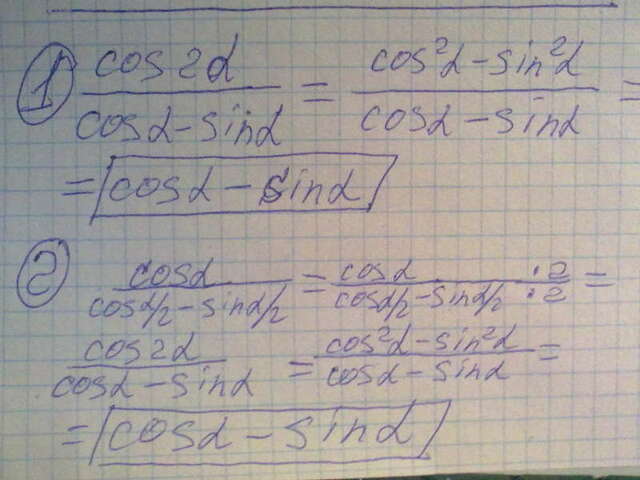 ① cos2α/(cosα-sinα) = (cos²α-sin²α)/(cosα-sinα) =
= cosα-sinα
② cosα/(cosα/2-sinα/2) = cosα/(cosα/2-sinα/2) :2/:2 =
cos2α/(cosα-sinα) = (cos²α-sin²α)/(cosα-sinα) =
= cosα-sinα